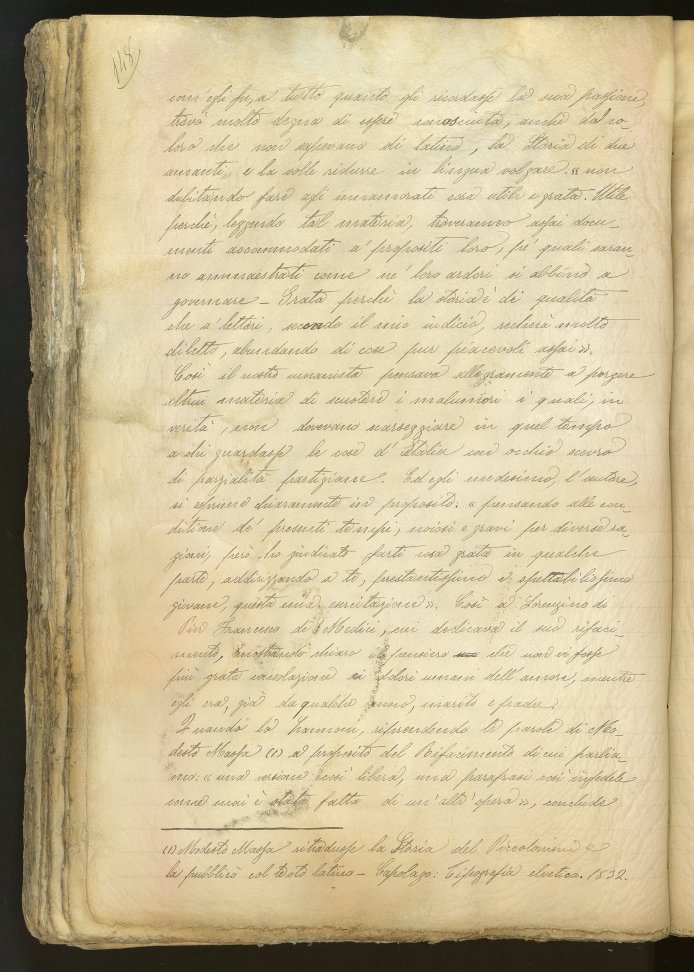 148
com'egli fu, a tutto quanto gli ricordasse la sua passione,
trovò molto degna di essere conosciuta, anche da co-
loro che non sapevano di latino, la Storia di due
amanti, e la volle ridurre in lingua volgare: « non
dubitando fare agli innamorati cosa utile e grata. Utile
perchè, leggendo tal materia, troveranno assai docu-
menti accommodati a' propositi loro, pe' quali saran-
no ammaestrati come ne' loro ardori si abbino a
governare - Grata perchè la storia è di qualità
che a' lettori, secondo il mio indicio, recherà molto
diletto, abundando di cose pur piacevoli assai ».
Così il nostro umanista pensava allegramente a porgere
altrui materia di scuotere i malumori i quali, in
verità, non dovevano scarseggiare in quel tempo
a chi guardasse le cose d'Italia con occhio scevro
di parzialità partigiane. Ed egli medesimo, l'autore,
si esprime chiaramente in proposito: « pensando alle con-
ditione de' presenti tempi, noiosi e gravi per diverse ca-
gioni, però, ho giudicato farti cosa grata in qualche
parte, addirizzando a te, prestantissimo e spettabilissimo
giovane, questa mia esercitazione ». Così a Lorenzino di
Pier Francesco de' Medici, cui dedicava il suo rifaci-
mento, mostrando chiaro il pensiero che non vi fosse
più grata consolazione ai dolori umani dell'amore, mentre
egli era, già da qualche anno, marito e padre.
Quando la Zannoni, riprendendo le parole di Mo-
desto Massa (1) a proposito del Rifacimento di cui parlia-
mo: « una versione così libera, una parafrasi così infedele
come mai è stata fatta di un'altr'opera », conclude
(1) Modesto Massa ritradusse la Storia del Piccolomini e
la pubblicò col testo latino - Capolago: Tipografia elvetica. 1832.